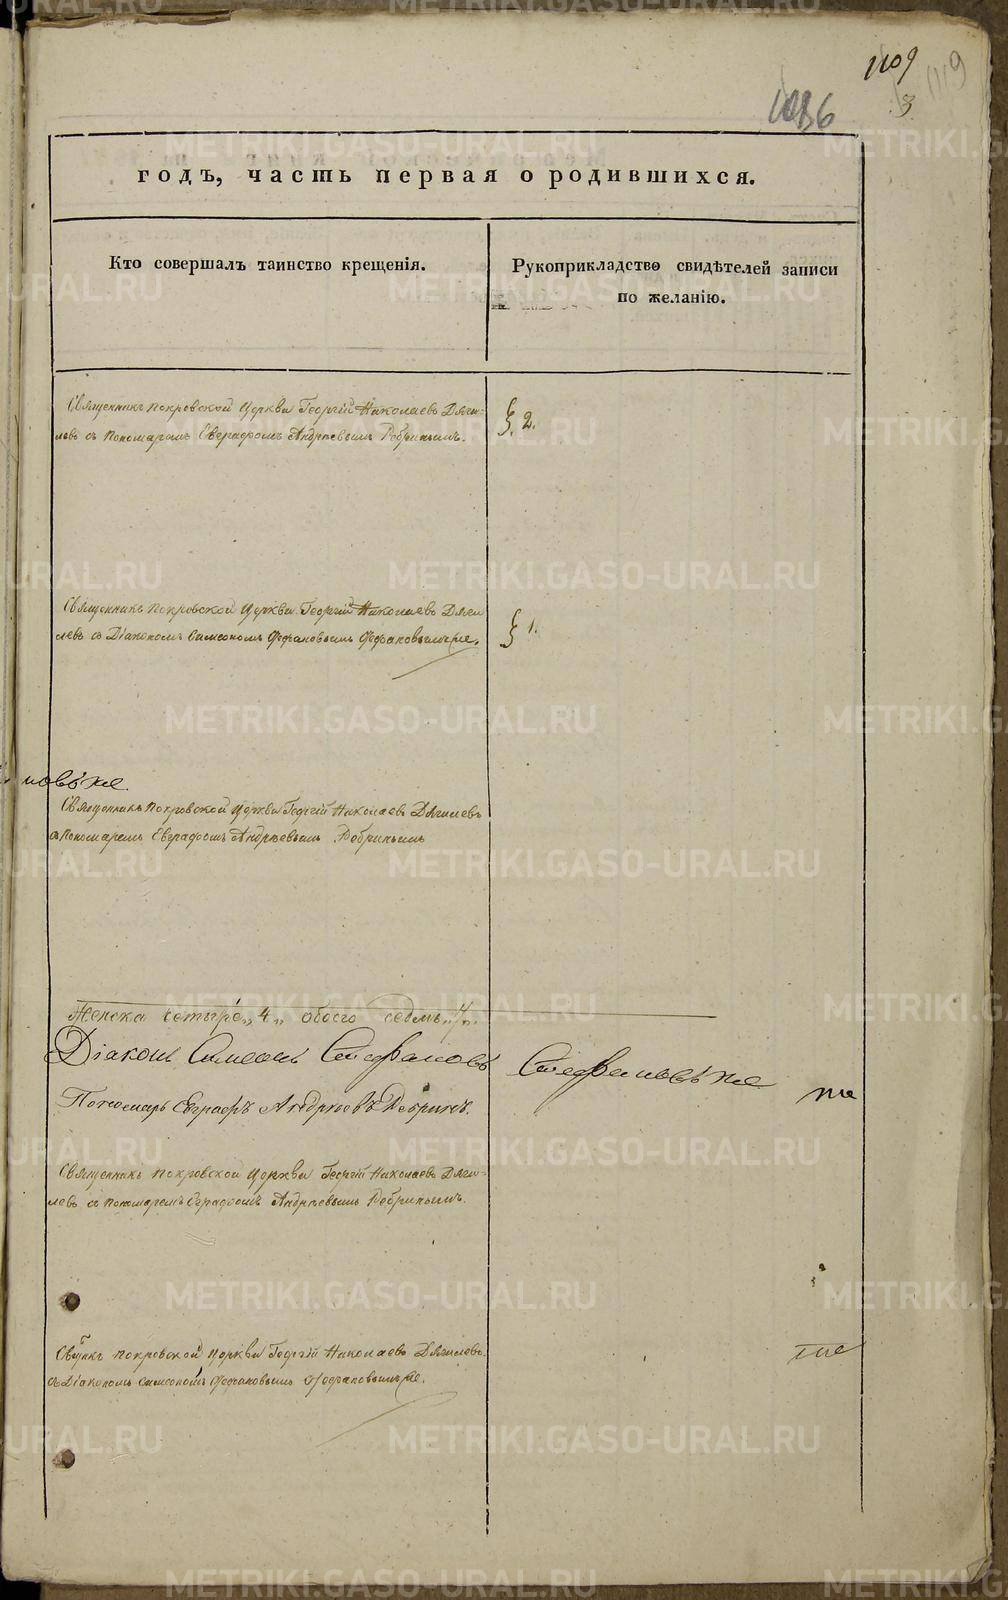 1109
1119
3
1036
годъ, часть первая о родившихся.
Кто совершалъ таинство крещенія.
Рукоприкладство свидѣтелей записи
по желанію.
Священникъ Покровской Церкви Георгій Николаевъ Дяги-
левъ съ Пономаремъ Евграфомъ Андрѣевымъ Ребринымъ.
2.
Священникъ Покровской Церкви Георгій Николаевъ Дяги
левъ съ Діакономъ Симеономъ
1.
Священникъ Покровской Церкви Георгій Николаевъ Дягилевъ
съ Пономаремъ Евграфомъ Андрѣевымъ Ребринымъ
Женска четыре „4„ обоего седмь „7„.
Діаконъ Симеонъ Стефановъ
Пономарь Евграфъ Андрѣевъ Ребринъ.
Священникъ Покровской Церкви Георгій Николаевъ Дяги-
левъ съ Пономаремъ Андрѣевымъ Ребринымъ.
Покровской Церкви Георгій Николаевъ Дягилевъ
съ Діакономъ Симеономъ
METRIKI.GASO-URAL.RU